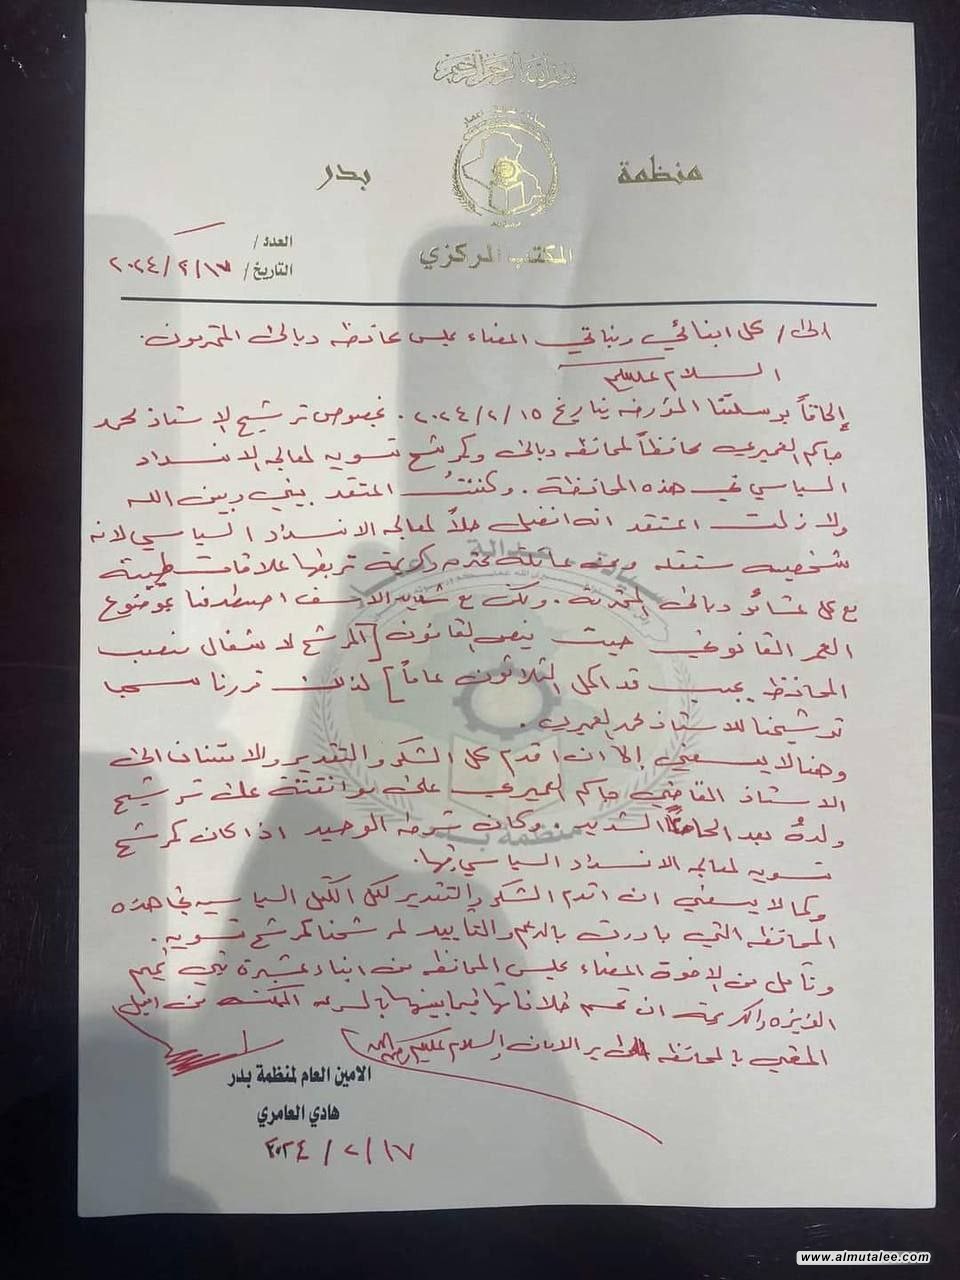 بسم الله الرحمن الرحيم
منظمة بدر
المكتب المركزي
العدد /
التاريخ / ٢٠٢٤/٢/١٧
الى / كل ابنائي وبناتي اعضاء مجلس محافظة ديالى المحترمون.
السلام عليكم
إلحاقاً برسالتنا المؤرخه بتاريخ ٢٠٢٤/٢/١٥. بخصوص ترشيح الاستاذ محمد
جاكم العميري محافظاً لمحافظه ديالى وكمرشح تسويه لمعالجه الانسداد
السياسي في هذه المحافظة. وكنتُ اعتقد بيني وبين الله
ولا زلت اعتقد انه افضل حلاً لمعالجه الانسداد السياسي لانه
شخصيه مستقله ومن عائلة محترمه وكريمة تربطها علاقات طيبة
مع كل عشائر ديالى المحترمة. ولكن مع شديد الاسف اصطدمنا بموضوع
العمر القانوني حيث ينص القانون [المرشح لاشغال منصب
المحافظ يجب قد اكمل الثلاثون عاماً] لذلك قررنا سحب
ترشيحنا للاستاذ محمد العميري.
وهنا لا يسعني إلا ان اقدم كل الشكر والتقدير والامتنان الى
الاستاذ القاضي جاكم العميري على موافقته على ترشيح
ولدهُ بعد الحاحنا الشديد. وكان شرطه الوحيد اذا كان كمرشح
تسويه لمعالجه الانسداد السياسي فيها.
وكما لا يسعني ان اقدم الشكر والتقدير لكل الكتل السياسيه في هذه
المحافظه التي بادرت بالدعم والتأييد لمرشحنا كمرشح تسويه.
ونأمل من الاخوة اعضاء مجلس المحافظه من ابناء عشيرة بني تميم
العزيزه والكريمة ان تحسم خلافاتها فيما بينها بالسرعه الممكنه من اجل
المضي بالمحافظه الى بر الامان والسلام عليكم ورحمة الله
الامين العام لمنظمة بدر
هادي العامري
٢٠٢٤/٢/١٧
www.almutalee.com